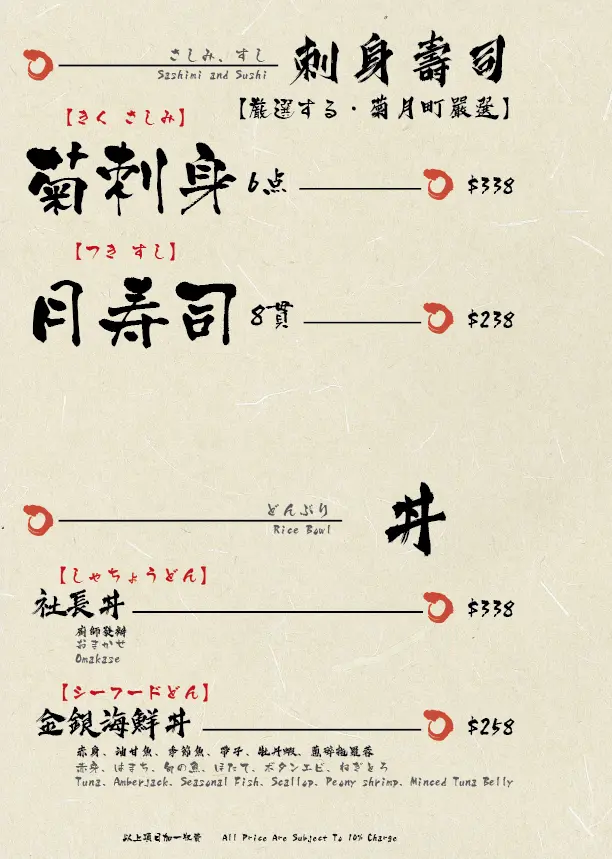 さしみ、すし
Sashimi and Sushi
刺身壽司
【厳選する・菊月町嚴選】
【きく さしみ】
菊刺身 6点 $338
【つき すし】
月寿司 8貫 $238
どんぶり
Rice Bowl
丼
【しゃちょうどん】
社長丼 $338
廚師發辦
おまかせ
Omakase
【シーフードどん】
金銀海鮮丼 $258
赤身、油甘魚、季節魚、帶子、牡丹蝦、蔥碎拖羅蓉
赤身、はまち、旬の魚、ほたて、ボタンエビ、ねぎとろ
Tuna、Amberjack、Seasonal Fish、Scallop、Peony shrimp、Minced Tuna Belly
以上項目加一收費 All Price Are Subject To 10% Charge